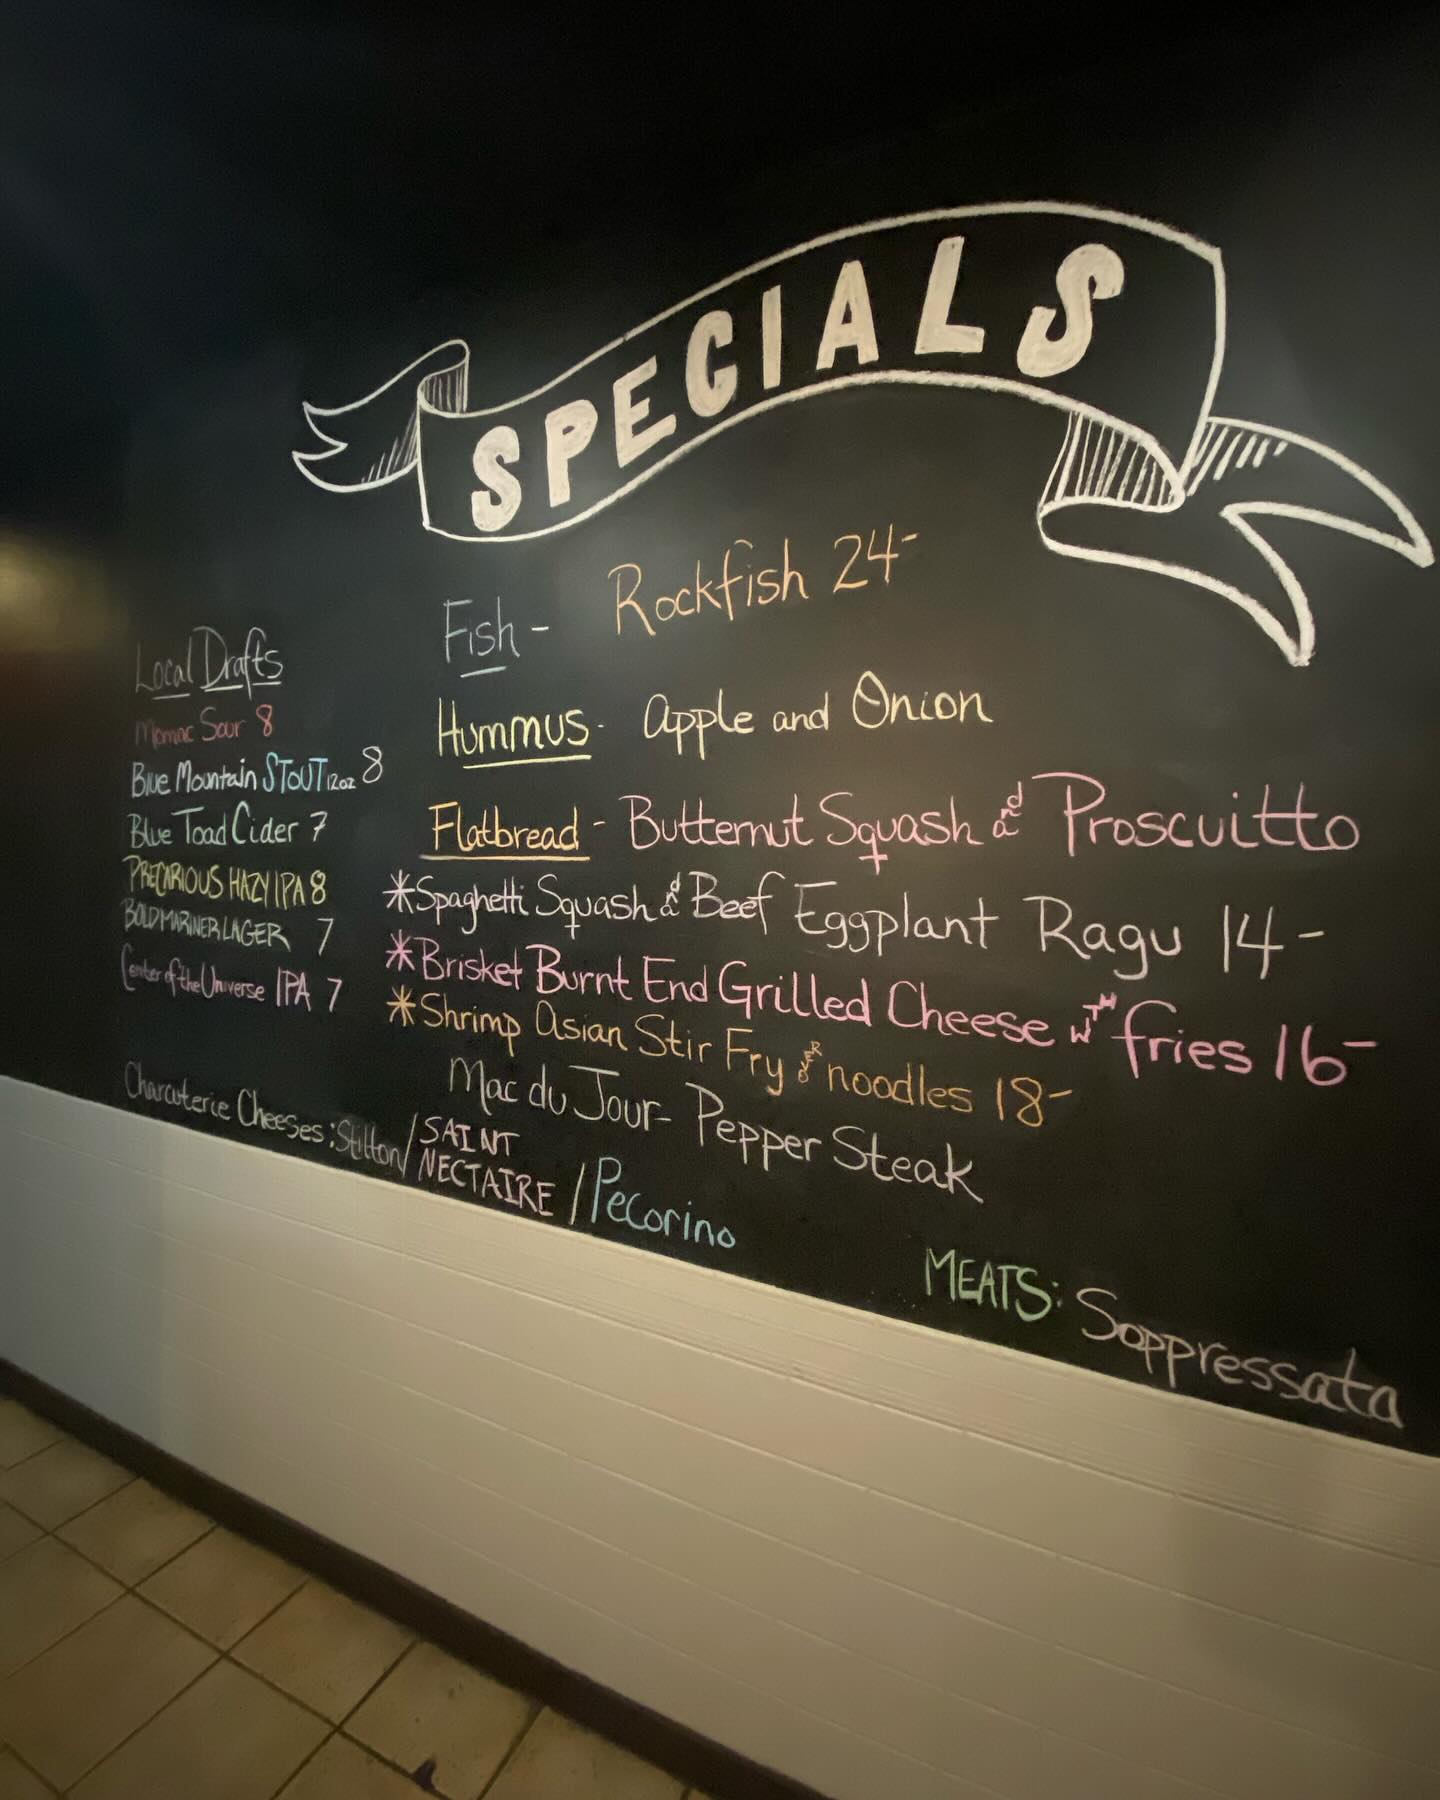 SPECIALS
Fish - Rockfish 24-
Hummus - Apple and Onion
Flatbread - Butternut Squash and Proscuitto
*Spaghetti Squash and Beef Eggplant Ragu 14-
*Brisket Burnt End Grilled Cheese WITH fries 16-
*Shrimp Asian Stir Fry OVER noodles 18-
Mac du Jour - Pepper Steak
Local Drafts
Momac Sour 8
Blue Mountain STOUT 12oz 8
Blue Toad Cider 7
PRECARIOUS HAZY IPA 8
BOLD MARINER LAGER 7
Center of the Universe IPA 7
Charcuterie Cheeses: Stilton / SAINT
NECTAIRE / Pecorino
MEATS: Soppressata